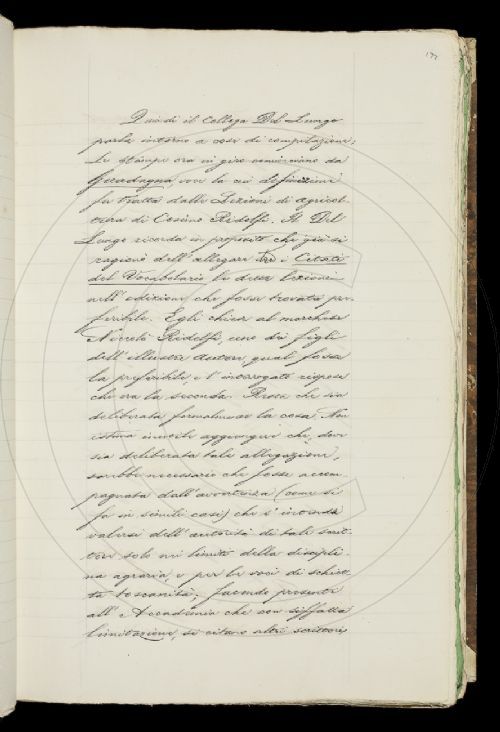 177
Quindi il Collega Del Lungo
parla intorno a cose di compilazione:
Le stampe ora in giro cominciano da
Guadagna, voce la cui definizione
fu tratta dalle Lezioni di Agricol-
tura di Cosimo Ridolfi. Il Del
Lungo ricorda in proposito che già si
ragionò dell'allegare tra i Citati
del Vocabolario le dette Lezioni
nell'edizione che fosse trovata pre-
feribile. Egli chiese al marchese
Niccolò Ridolfi, uno dei figli
dell'illustre Autore, qual fosse
la preferibile, e l'interrogato rispose
che era la seconda. Prega che sia
deliberata formalmente la cosa. Non
istima inutile aggiungere che, dove
sia deliberata tale allegazione,
sarebbe necessario che fosse accom-
pagnata dall'avvertenza (come si
fa in simili casi) che s'intende
valersi dell'autorità di tale scrit-
tore solo nei limiti della discipli-
na agraria e per le voci di schiet-
ta toscanità; facendo presente
all'Accademia che con siffatta
limitazione, si citano altri scrittori